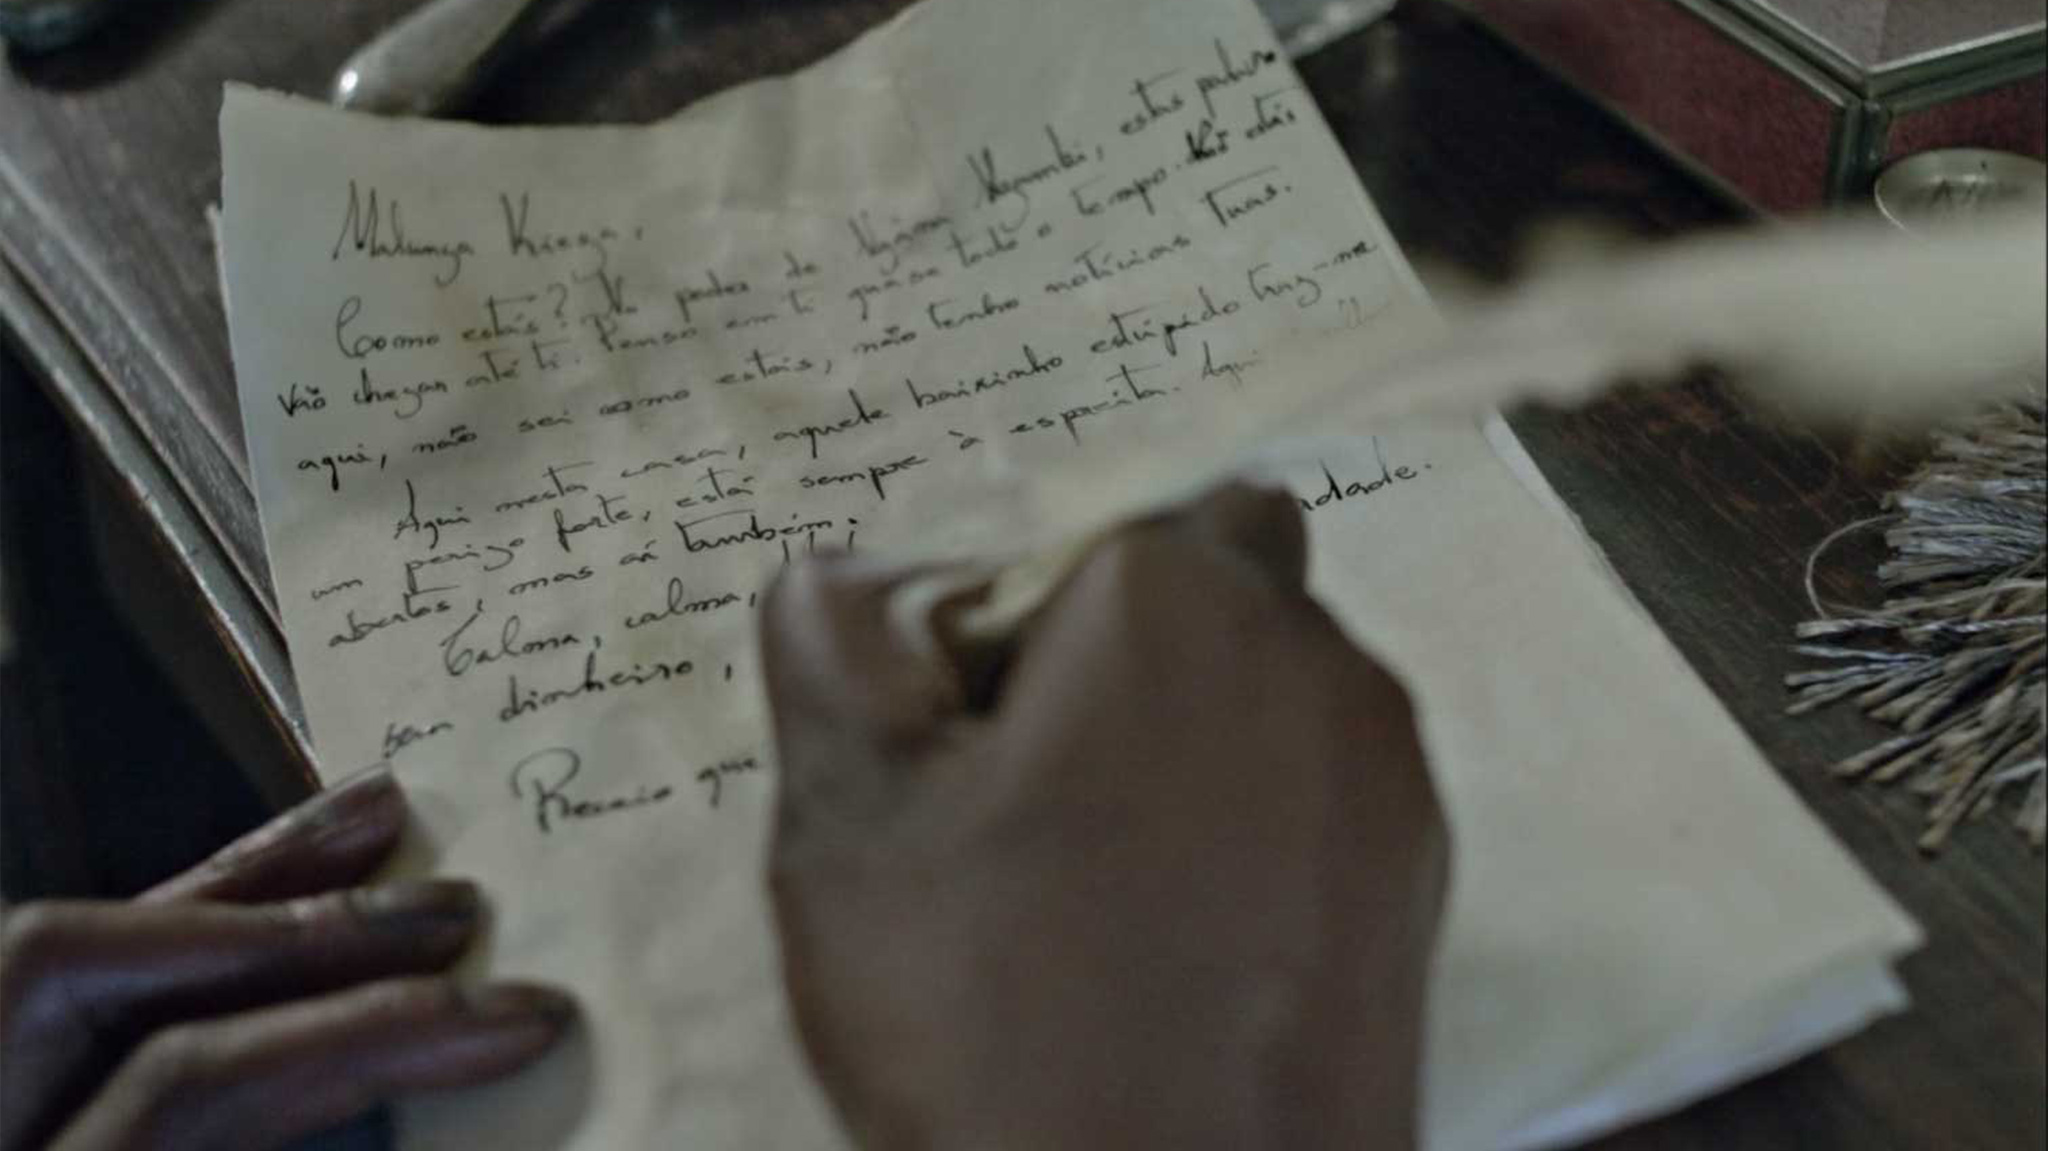 Malunga Kieza,
Como estás? No poder de Ngana Nzambi, estas palavras
vão chegar até ti. Penso em ti quase todo o tempo. Não estás
aqui, não sei como estás, não tenho notícias tuas.
Aqui nesta casa, aquele baixinho estúpido traz-me
um perigo forte, está sempre à espreita. Aqui
abertos, mas aí também.
Calma, calma,
sem dinheiro,
Receio que